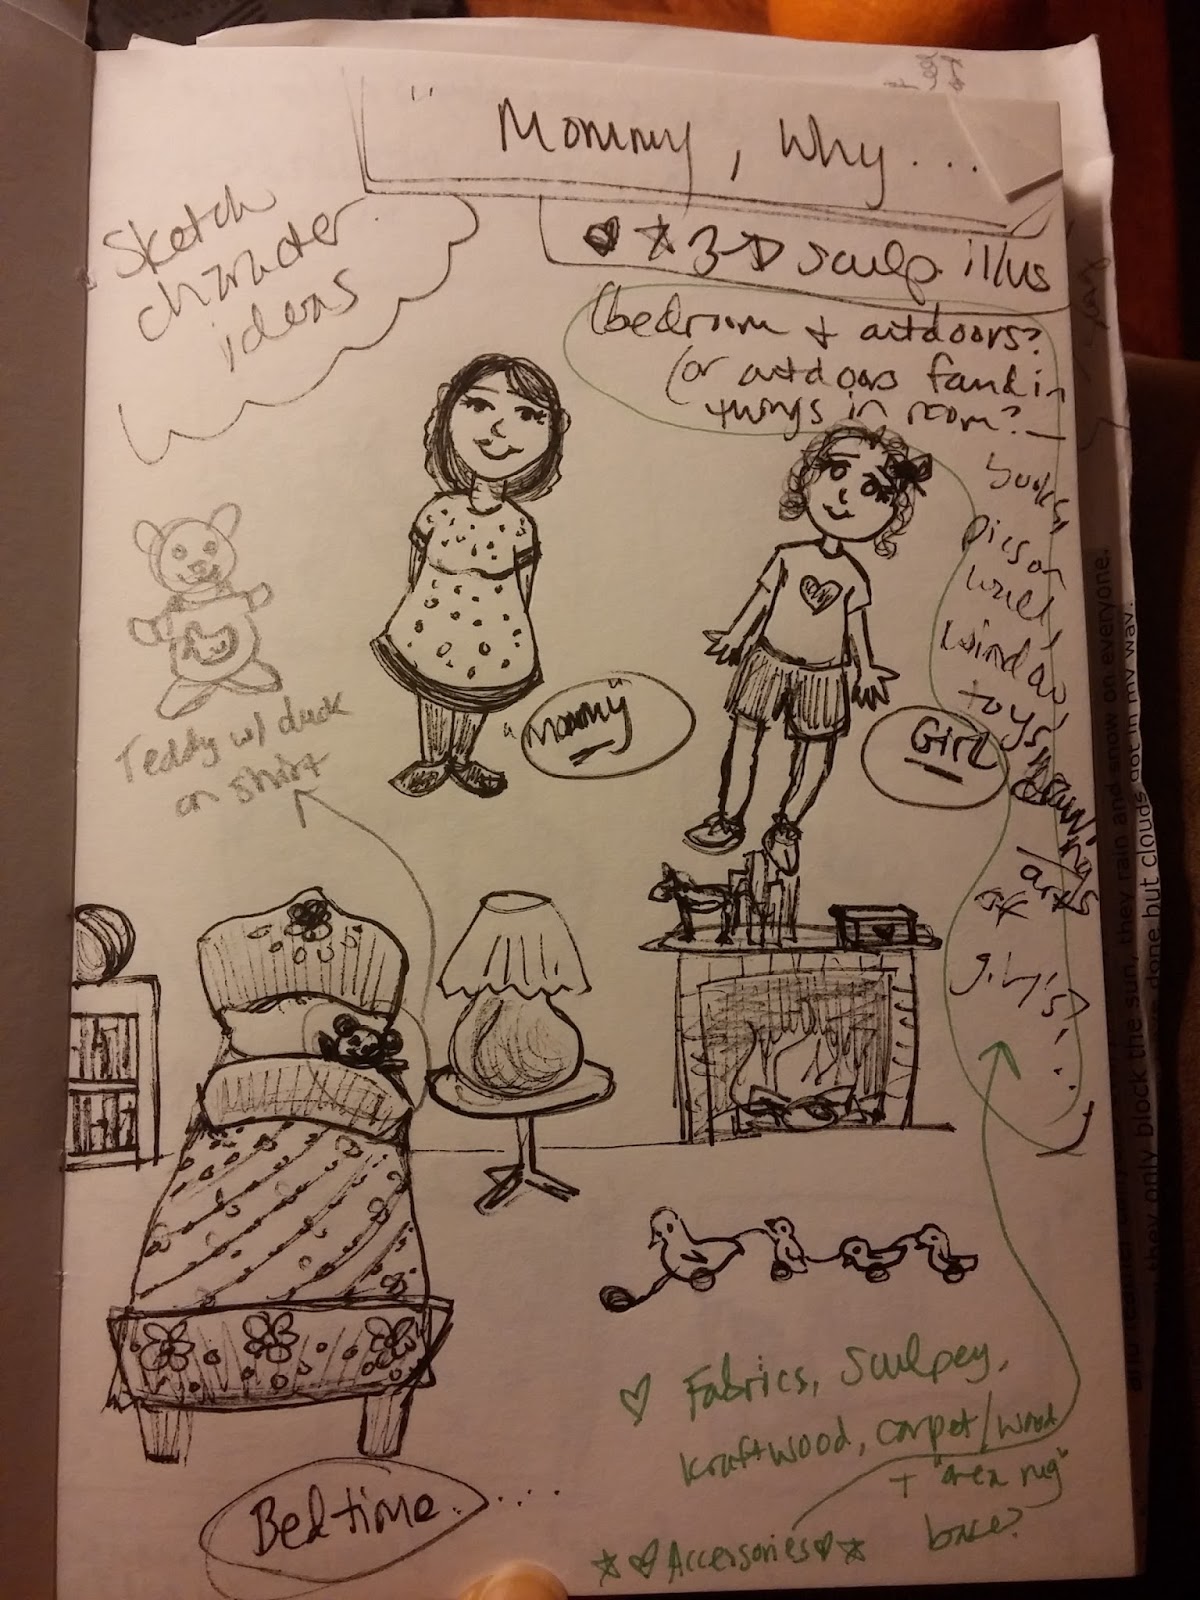 " Mommy, Why...
Sketch
character
ideas
♥ ☆ 3-D sculp illus
(bedroom + outdoors?
(or outdoors found in
things in room? —
books,
pics on
wall,
window
toys,
drawings
arts
girl's?
...
Teddy w/ duck
on shirt
"Mommy"
Girl
Bedtime.....
♡ Fabrics, Sculpey,
kraftwood, carpet/wood
+ "area rug"
base?
☆ ♡ Accessories ♡ ☆
they only block the sun, they rain and snow on everyone.
done but clouds got in my way.